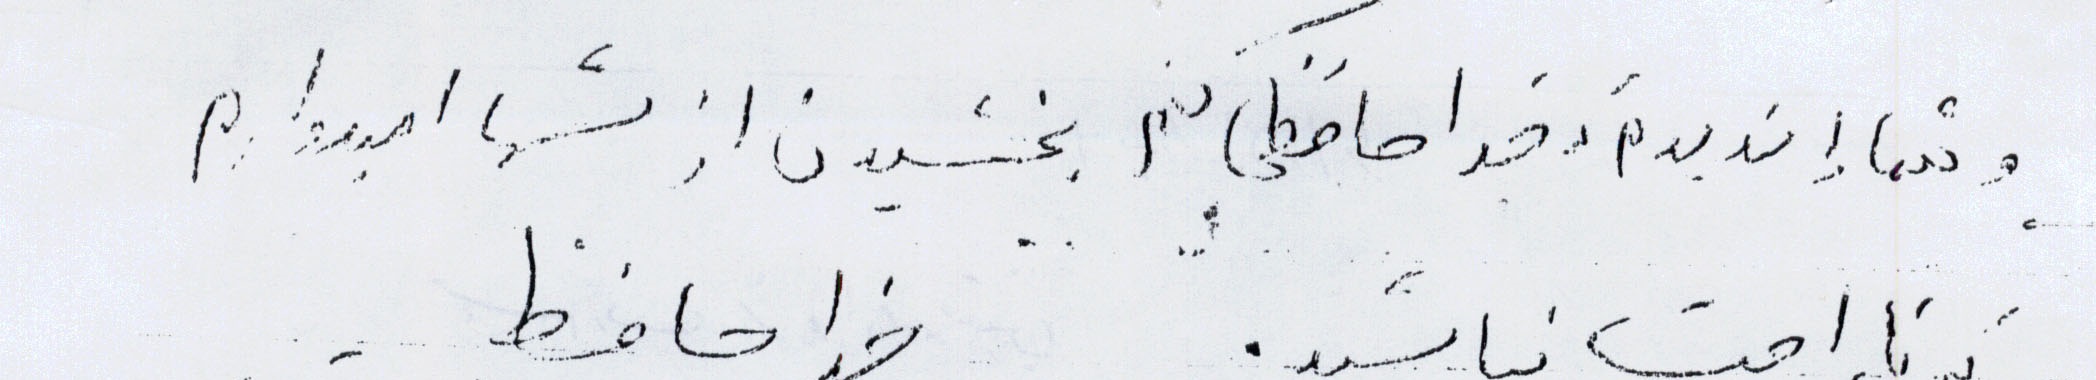 و شما را ندیدم و خدا حافظی کنم بخشیدن از شما امیدوارم
که ناراحت نباشید. خدا حافظ